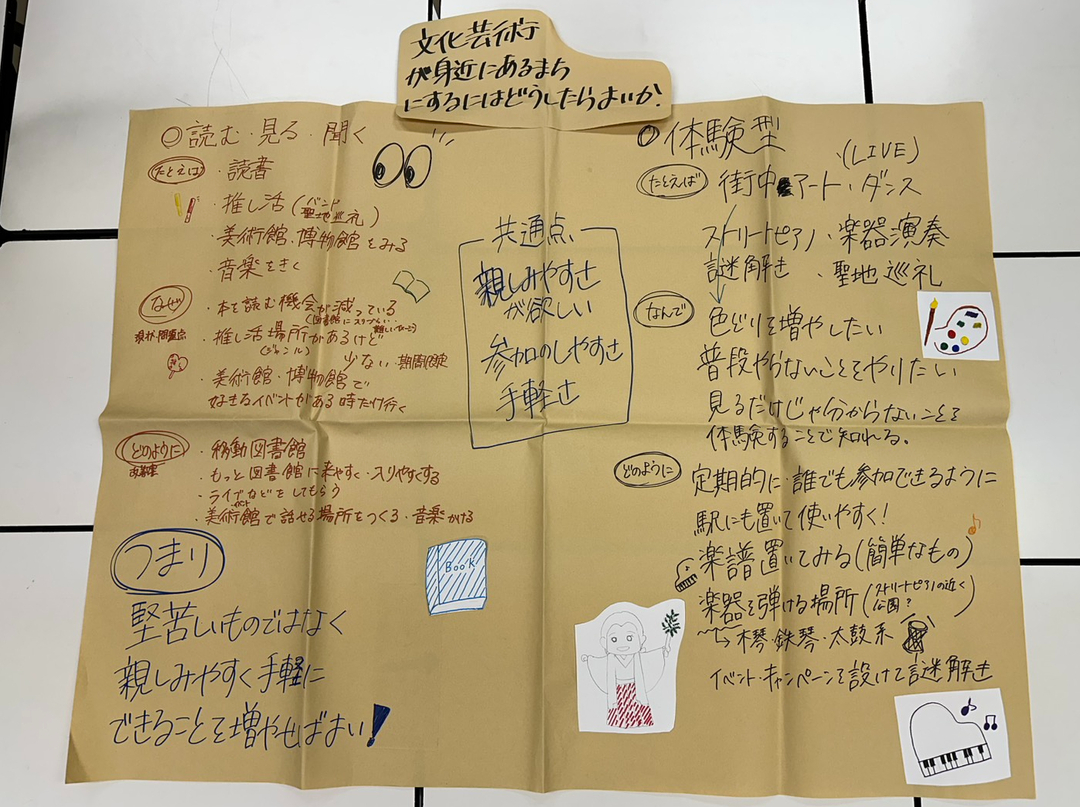 文化芸術
が身近にあるまち
にするにはどうしたらよいか?
◎読む・見る・聞く
たとえば
・読書
・推し活(バンド 聖地巡礼)
・美術館・博物館をみる
・音楽をきく
なぜ
現状・問題点
・本を読む機会が減っている
(図書館に入りづらい・難しいイメージ)
・推し活場所があるけど
(ジャンル) 少ない・期間限定
・美術館・博物館で
好きなイベントがある時だけ行く
どのように
改善策
・移動図書館
・もっと図書館に来やすく・入りやすくする
・ライブなどをしてもらう
・美術館で話せる場所をつくる・音楽かける
つまり
堅苦しいものではなく
親しみやすく手軽に
できることを増やせばよい!
Book
共通点
親しみやすさ
が欲しい
参加のしやすさ
手軽さ
◎体験型
たとえば
街中アート・ダンス
(LIVE)
ストリートピアノ・楽器演奏
謎解き ・聖地巡礼
なんで
色どりを増やしたい
普段やらないことをやりたい
見るだけじゃ分からないことを
体験することで知れる。
どのように
定期的に・誰でも参加できるように
駅にも置いて使いやすく!
楽譜置いてみる(簡単なもの)
楽器を弾ける場所(ストリートピアノの近く 公園?)
木琴・鉄琴・太鼓系
イベント・キャンペーンを設けて謎解き